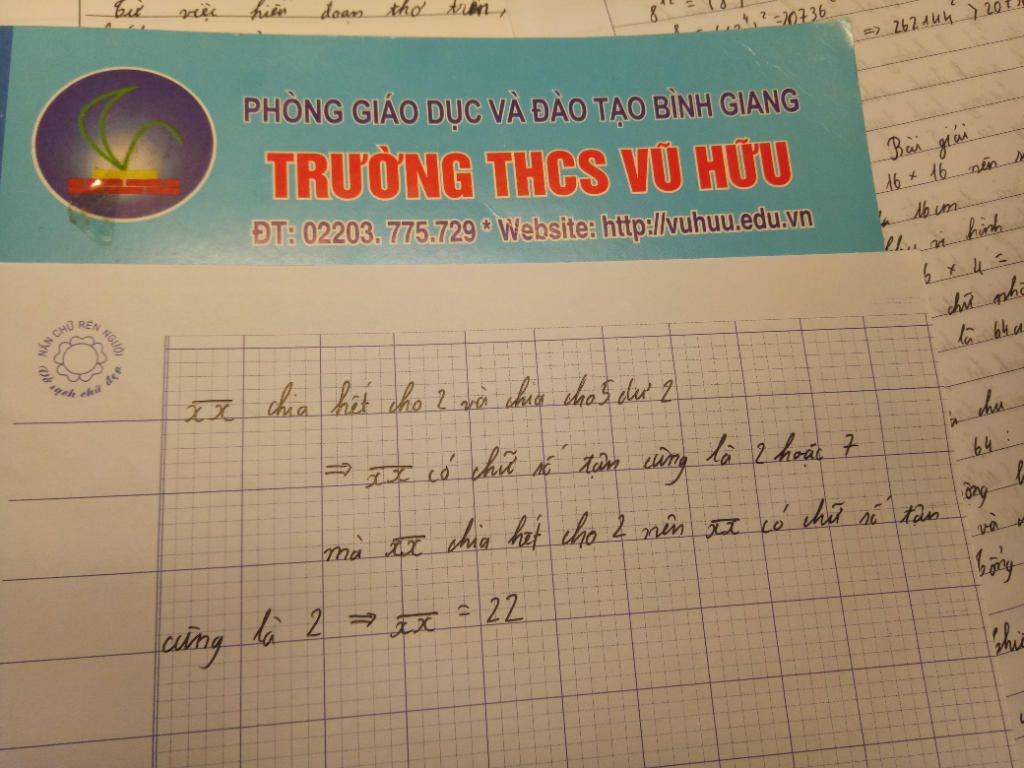 Từ việc hiên đoạn thơ trên,
=20736
=> 262144 > 207
PHÒNG GIÁO DỤC VÀ ĐÀO TẠO BÌNH GIANG
TRƯỜNG THCS VŨ HỮU
ĐT: 02203. 775.729 * Website: http://vuhuu.edu.vn
Bài giải
16 × 16 nên
16 cm
hình
6 × 4 =
chữ nhậ
là 64
chu
64 :
NẮN CHỮ RÈN NGƯỜI
Vở sạch chữ đẹp
xx chia hết cho 2 và chia cho 5 dư 2
=> xx có chữ số tận cùng là 2 hoặc 7
mà xx chia hết cho 2 nên xx có chữ số tận
cùng là 2 => xx = 22
và